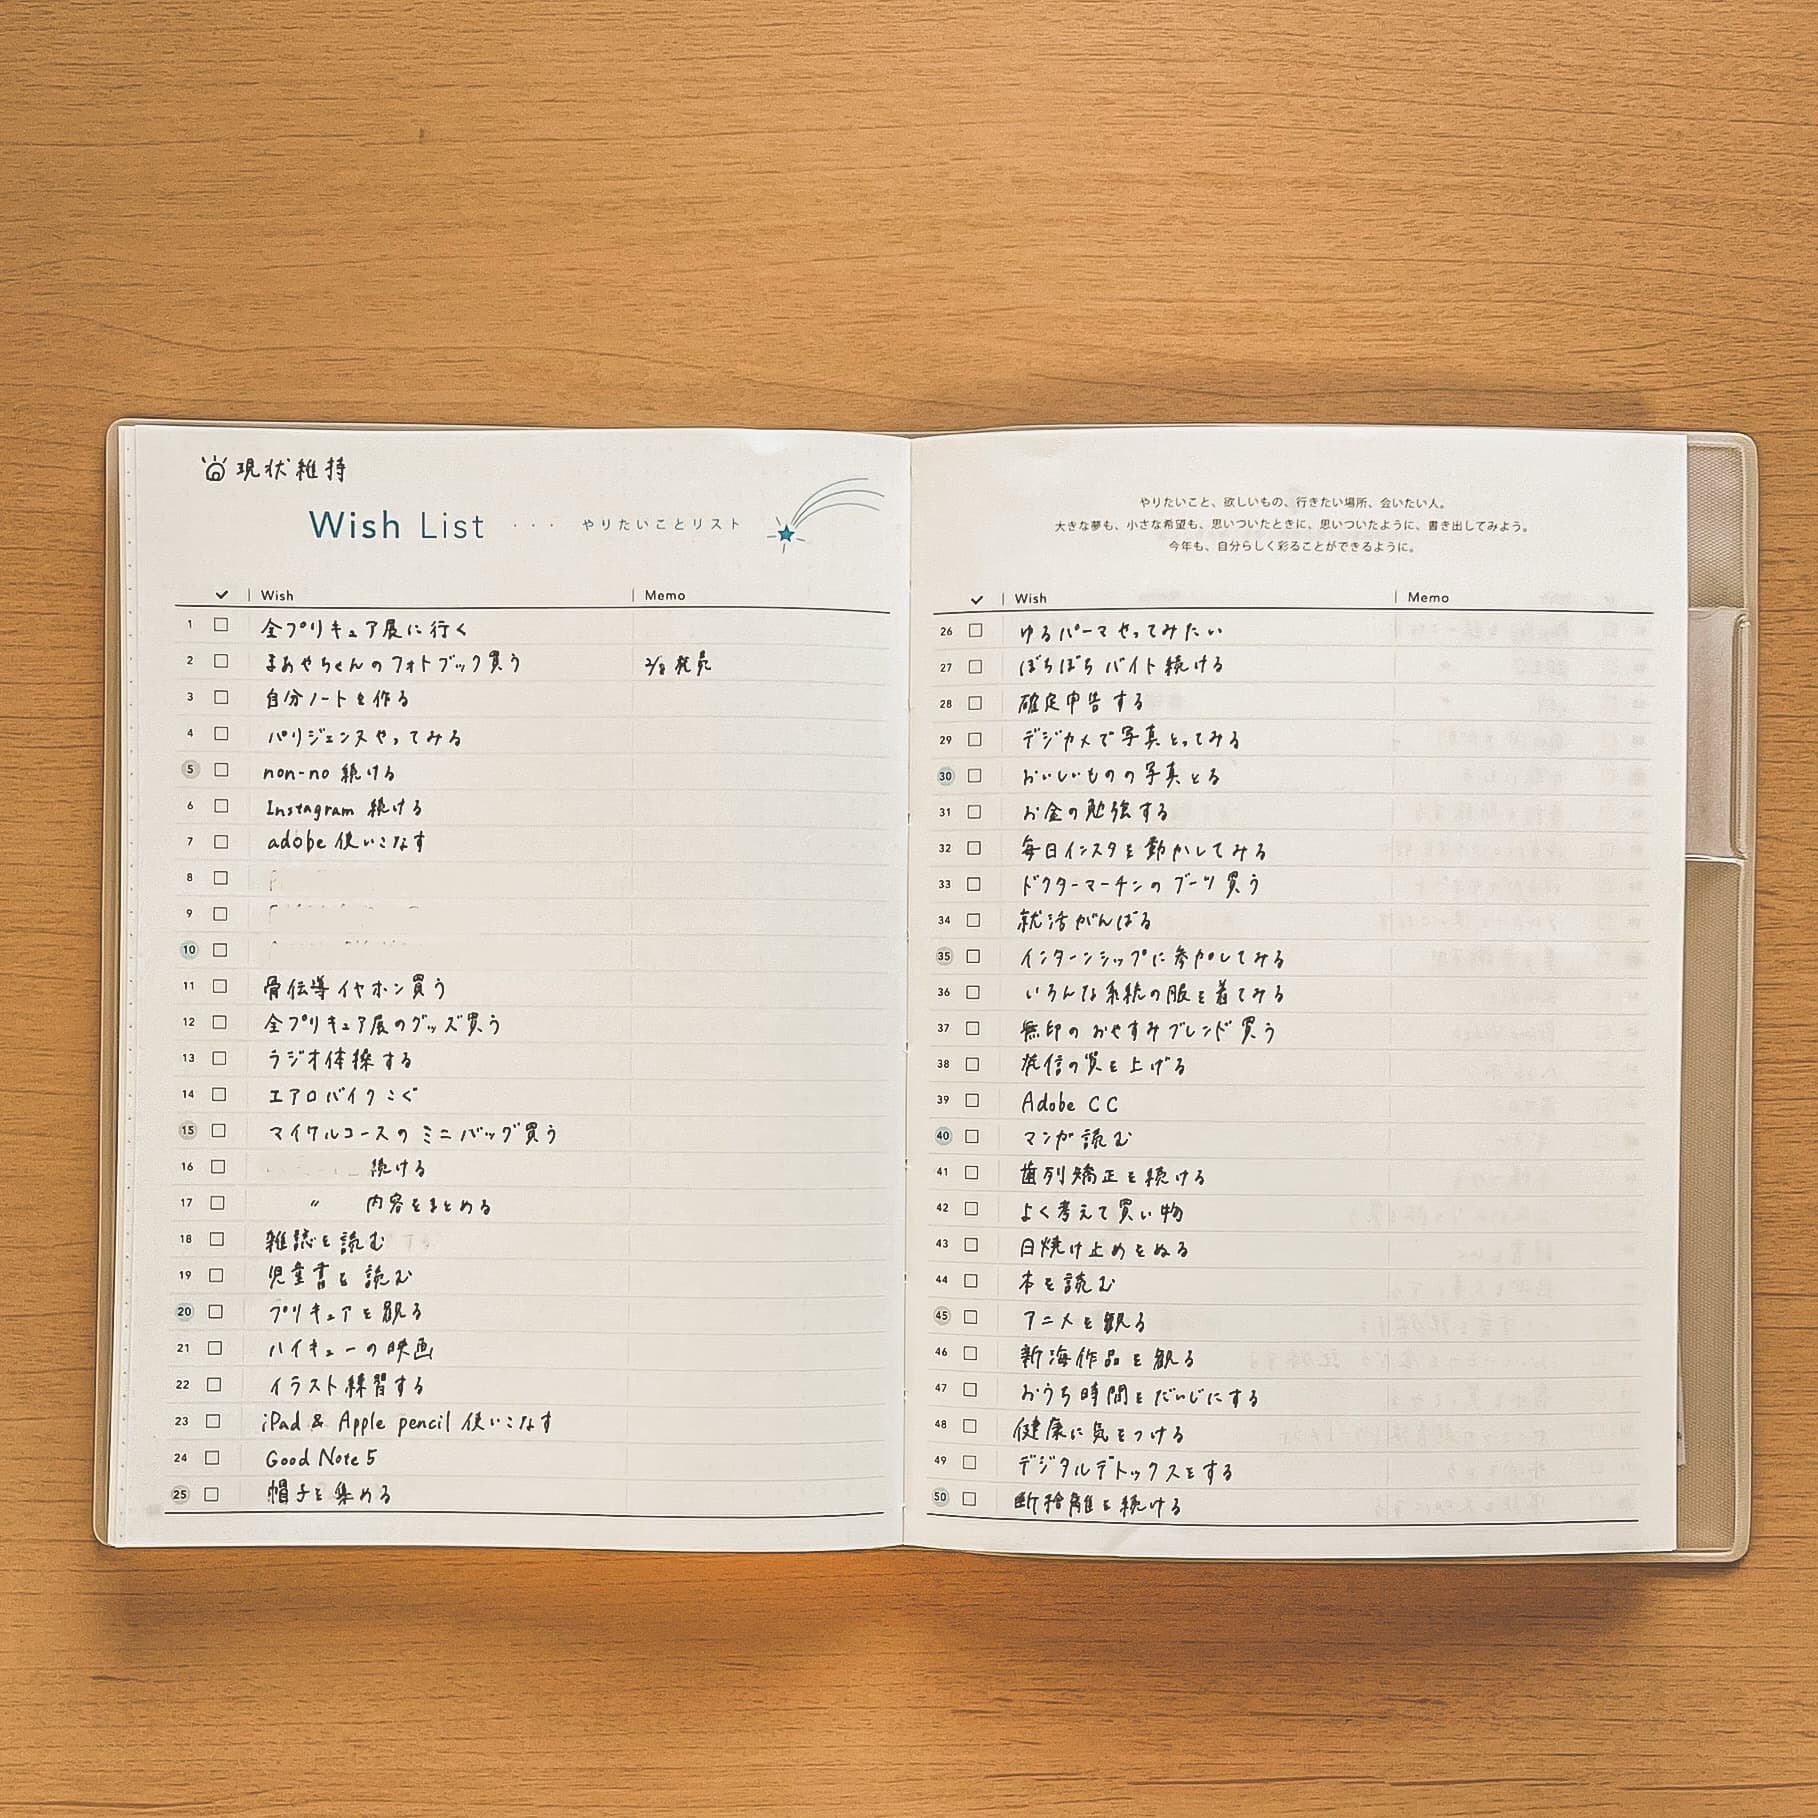 現状維持
Wish List ・・・ やりたいことリスト
✓ | Wish | Memo
1 □ 全プリキュア展に行く
2 □ まあやちゃんのフォトブック買う 2/8 発売
3 □ 自分ノートを作る
4 □ パリジェンヌやってみる
5 □ non-no 続ける
6 □ Instagram 続ける
7 □ adobe 使いこなす
8 □
9 □
10 □
11 □ 骨伝導イヤホン買う
12 □ 全プリキュア展のグッズ買う
13 □ ラジオ体操する
14 □ エアロバイクこぐ
15 □ マイケルコースのミニバッグ買う
16 □ 続ける
17 □ 〃 内容をまとめる
18 □ 雑誌を読む
19 □ 児童書を読む
20 □ プリキュアを観る
21 □ ハイキューの映画
22 □ イラスト練習する
23 □ iPad & Apple pencil 使いこなす
24 □ Good Note 5
25 □ 帽子を集める
やりたいこと、欲しいもの、行きたい場所、会いたい人。
大きな夢も、小さな希望も、思いついたときに、思いついたように、書き出してみよう。
今年も、自分らしく彩ることができるように。
✓ | Wish | Memo
26 □ ゆるパーマやってみたい
27 □ ぼちぼちバイト続ける
28 □ 確定申告する
29 □ デジカメで写真とってみる
30 □ おいしいものの写真とる
31 □ お金の勉強する
32 □ 毎日インスタを動かしてみる
33 □ ドクターマーチンのブーツ買う
34 □ 就活がんばる
35 □ インターンシップに参加してみる
36 □ いろんな系統の服を着てみる
37 □ 無印のおやすみブレンド買う
38 □ 発信の質を上げる
39 □ Adobe CC
40 □ マンガ読む
41 □ 歯列矯正を続ける
42 □ よく考えて買い物
43 □ 日焼け止めをぬる
44 □ 本を読む
45 □ アニメを観る
46 □ 新海作品を観る
47 □ おうち時間をだいじにする
48 □ 健康に気をつける
49 □ デジタルデトックスをする
50 □ 断捨離を続ける